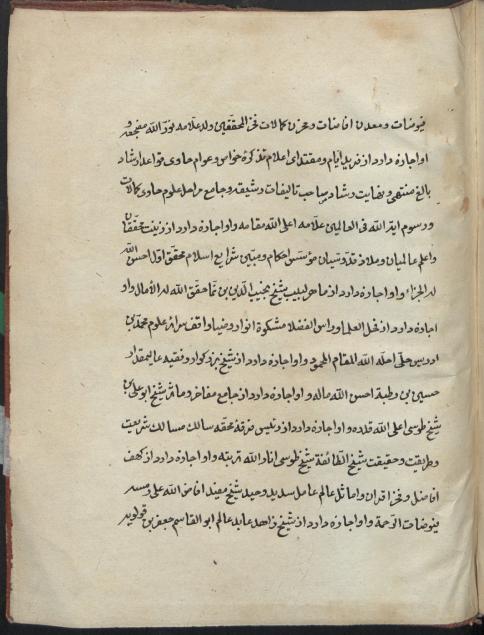 فیوضات و معدن افاضات و مخزن کمالات فخر المحققین ولد علامه نور الله مضجعه و
او اجازه دارد از فرید ایام و مقتدای اعلام تذکره خواص و عوام حاوی قواعد ارشاد
بالغ منتهی و نهایت رشاد صاحب تالیفات رشیقه و جامع مراحل علوم حاوی کمالات
و رسوم آیة الله فی العالمین علامه اعلی الله مقامه و او اجازه دارد از زینت محققان
و اعلم عالمیان و ملاذ قدوسیان مؤسس احکام و مبین شرایع اسلام محقق اول احسن الله
له الجزاء و او اجازه دارد از ماهر لبیب شیخ نجیب الدین بن نما حقق الله له الآمال و او
اجازه دارد از فحل العلما و راس الفضلا مشکوة انوار و ضیا واقف سرائر علوم محمد بن
ادریس حلی احله الله المقام المحمود و او اجازه دارد از شیخ بزرگوار و فقیه عالیمقدار
حسین بن رطبة احسن الله ماله و او اجازه دارد از جامع مفاخر و ماثر شیخ ابو علی بن
شیخ طوسی اعلی الله قدره و او اجازه دارد از رئیس فرقه محقه سالک مسالک شریعت
و طریقت و حقیقت شیخ الطائفة شیخ طوسی انار الله تربته و او اجازه دارد از کهف
افاضل و فخر اقران و اماثل عالم عامل سدید وحید شیخ مفید افاض الله علی رمسه
فیوضات الرحمة و او اجازه دارد از شیخ زاهد عابد عالم ابو القاسم جعفر بن قولویه